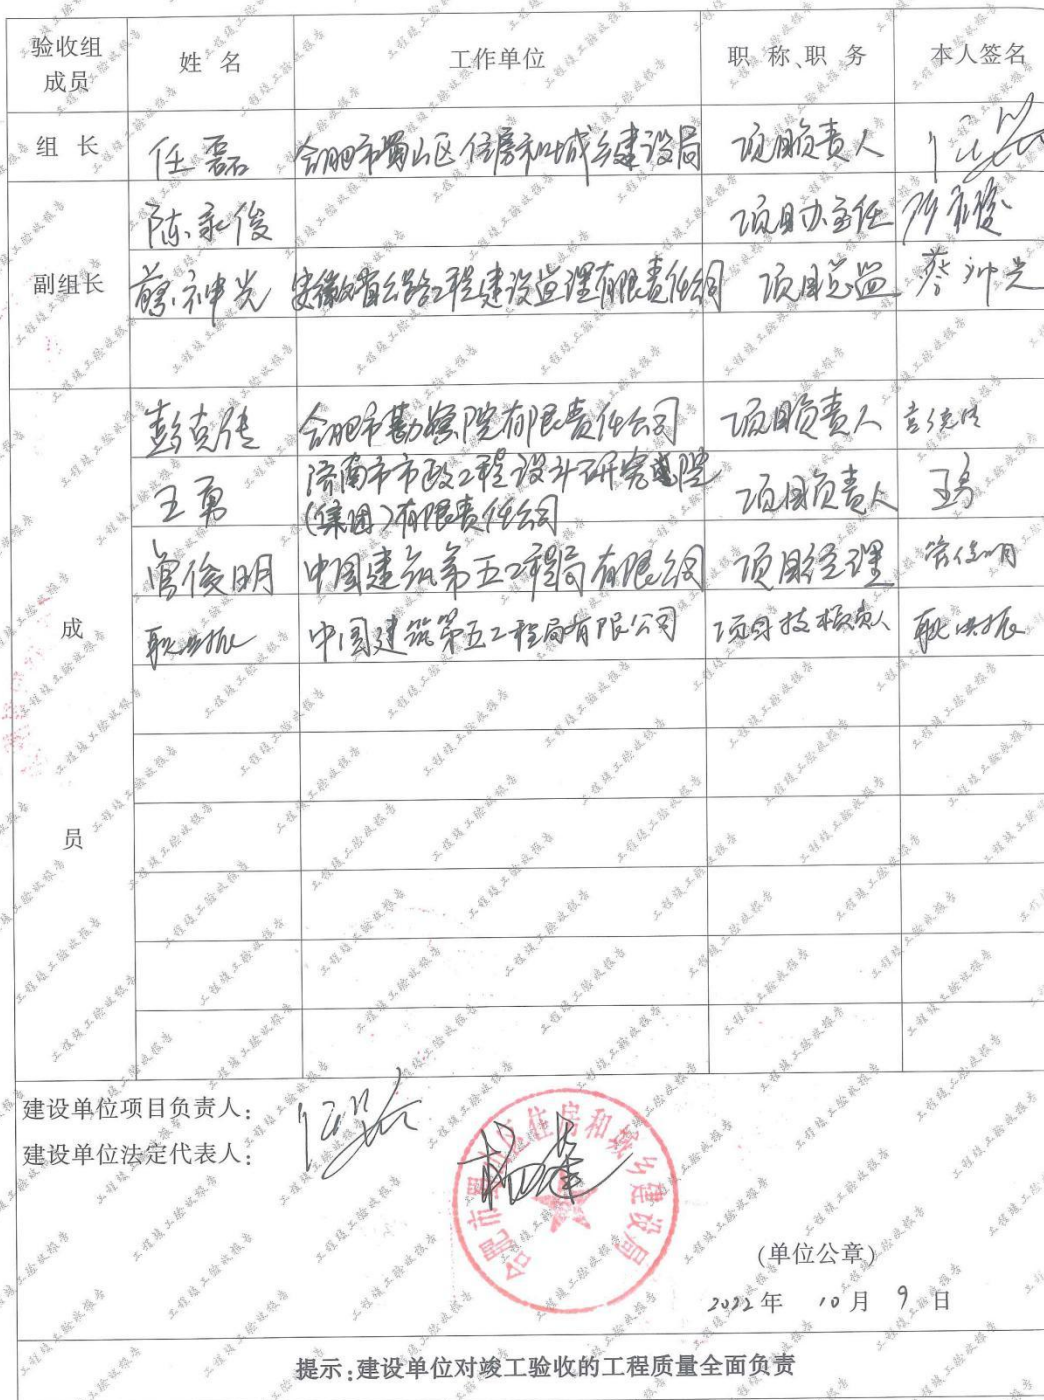 验收组成员 姓 名 工作单位 职 称、职 务 本人签名
组 长 任磊 合肥市蜀山区住房和城乡建设局 项目负责人
陈永俊 项目办主任
副组长 蔡神光 安徽省公路工程建设监理有限责任公司 项目总监 蔡神光
彭克传 合肥市勘察院有限责任公司 项目负责人
王勇 济南市市政工程设计研究院
(集团)有限责任公司 项目负责人 王勇
管俊明 中国建筑第五工程局有限公司 项目经理 管俊明
中国建筑第五工程局有限公司 项目技术负责人
成员
建设单位项目负责人:
建设单位法定代表人:
合肥市蜀山区住房和城乡建设局
(单位公章)
2022年 10月 9日
提示:建设单位对竣工验收的工程质量全面负责
工程竣工验收报告